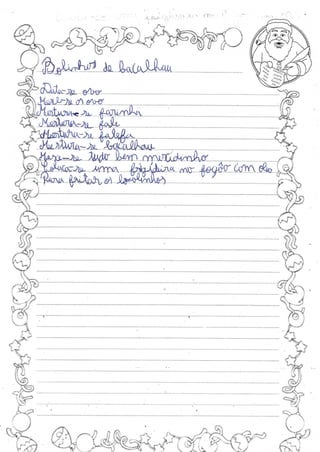 Bolinhos de bacalhau
Deita-se ovo
Mexe-se o ovo
Mistura-se farinha
Mistura-se sale
Mistura-se salsa
Mistura-se bacalhau
Mexe-se tudo bem mexidinho
Coloca-se uma frigideira no fogão com olo
Para fritar os bolinhos